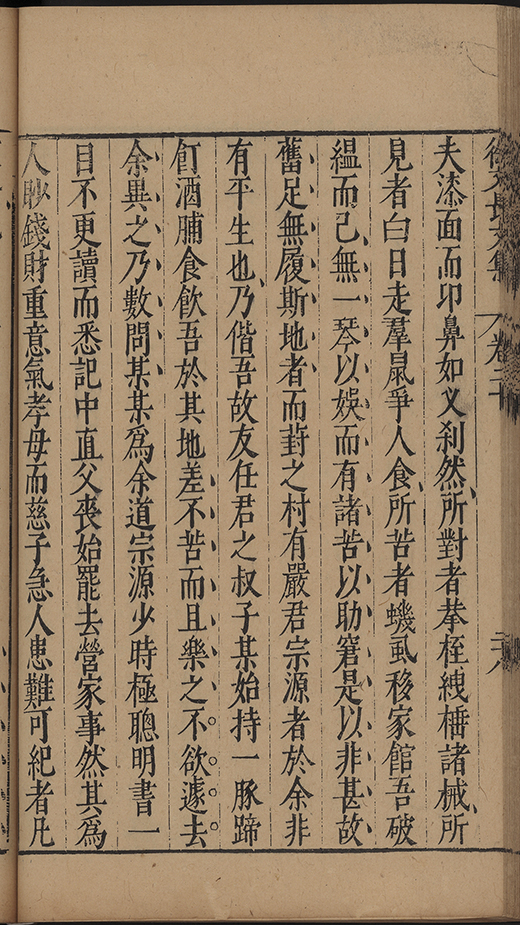 徐文長文集 卷二十 二八
夫漆面而卬鼻如义刹然所對者拲桎絏諸械所
見者白日走羣鼠爭人食所苦者蟣虱移家館吾破
縕而已無一琴以娛而有諸苦以助窘是以非甚故
舊足無履斯地者而葑之村有嚴君宗源者於余非
有平生也乃偕吾故友任君之叔子某始持一豚蹄
飣酒脯食飲吾於其地差不苦而且樂之不欲遽去
余異之乃數問某某爲余道宗源少時極聰明書一
目不更讀而悉記中直父喪始罷去營家事然其爲
人眇錢財重意氣孝母而慈子急人患難可紀者凡